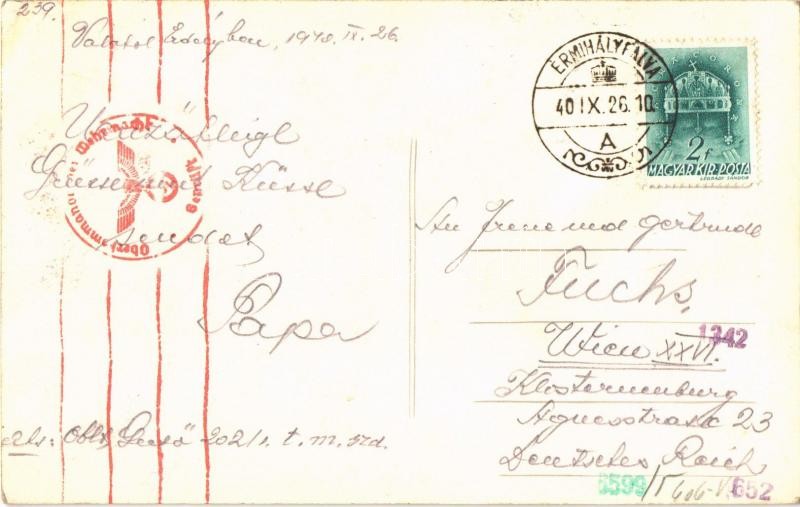 239.
Valahol Erdélyben, 1940. IX. 26.
ÉRMIHÁLYFALVA
40 IX. 26. 10
A
2f
MAGYAR KIR. POSTA
LÉGRÁDY SÁNDOR
Oberkommando der Wehrmacht
Unzählige
Grüsse und Küsse
sendet
Papa
An Irene und Gertrude
Fuchs,
Wien XXVI.
1342
Klosterneuburg
Agnesstrasse 23
Deutsches Reich
202/1. t. m. szd.
6599
652